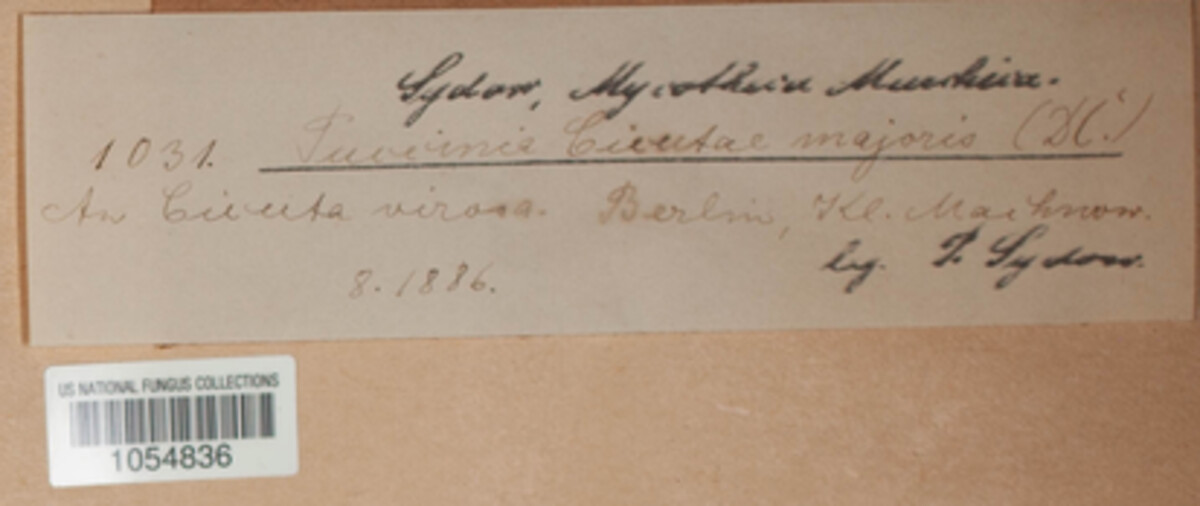 Sydow, Mycotheca Marchica.
1031. Puccinia Cicutae majoris (DC.)
An Cicuta virosa. Berlin, Kl. Machnow.
leg. P. Sydow.
8. 1886.
US NATIONAL FUNGUS COLLECTIONS
1054836